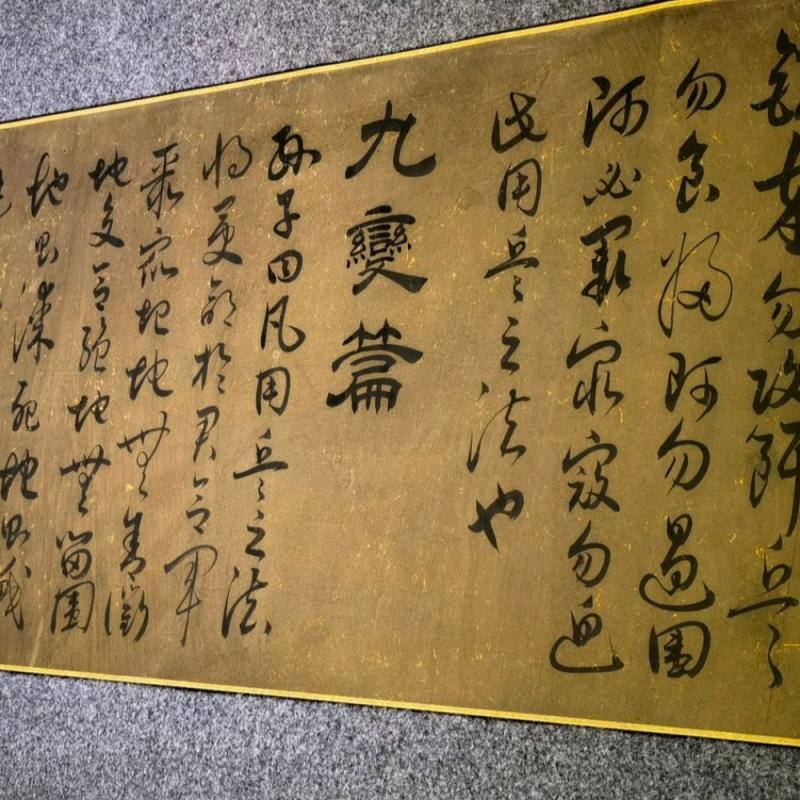 銳卒勿攻餌兵
勿食歸師勿遏圍
師必闕窮寇勿迫
此用兵之法也
九變篇
孫子曰凡用兵之法
將受命於君合軍
聚眾圮地無舍衢
地交合絕地無留圍
地則謀死地則戰